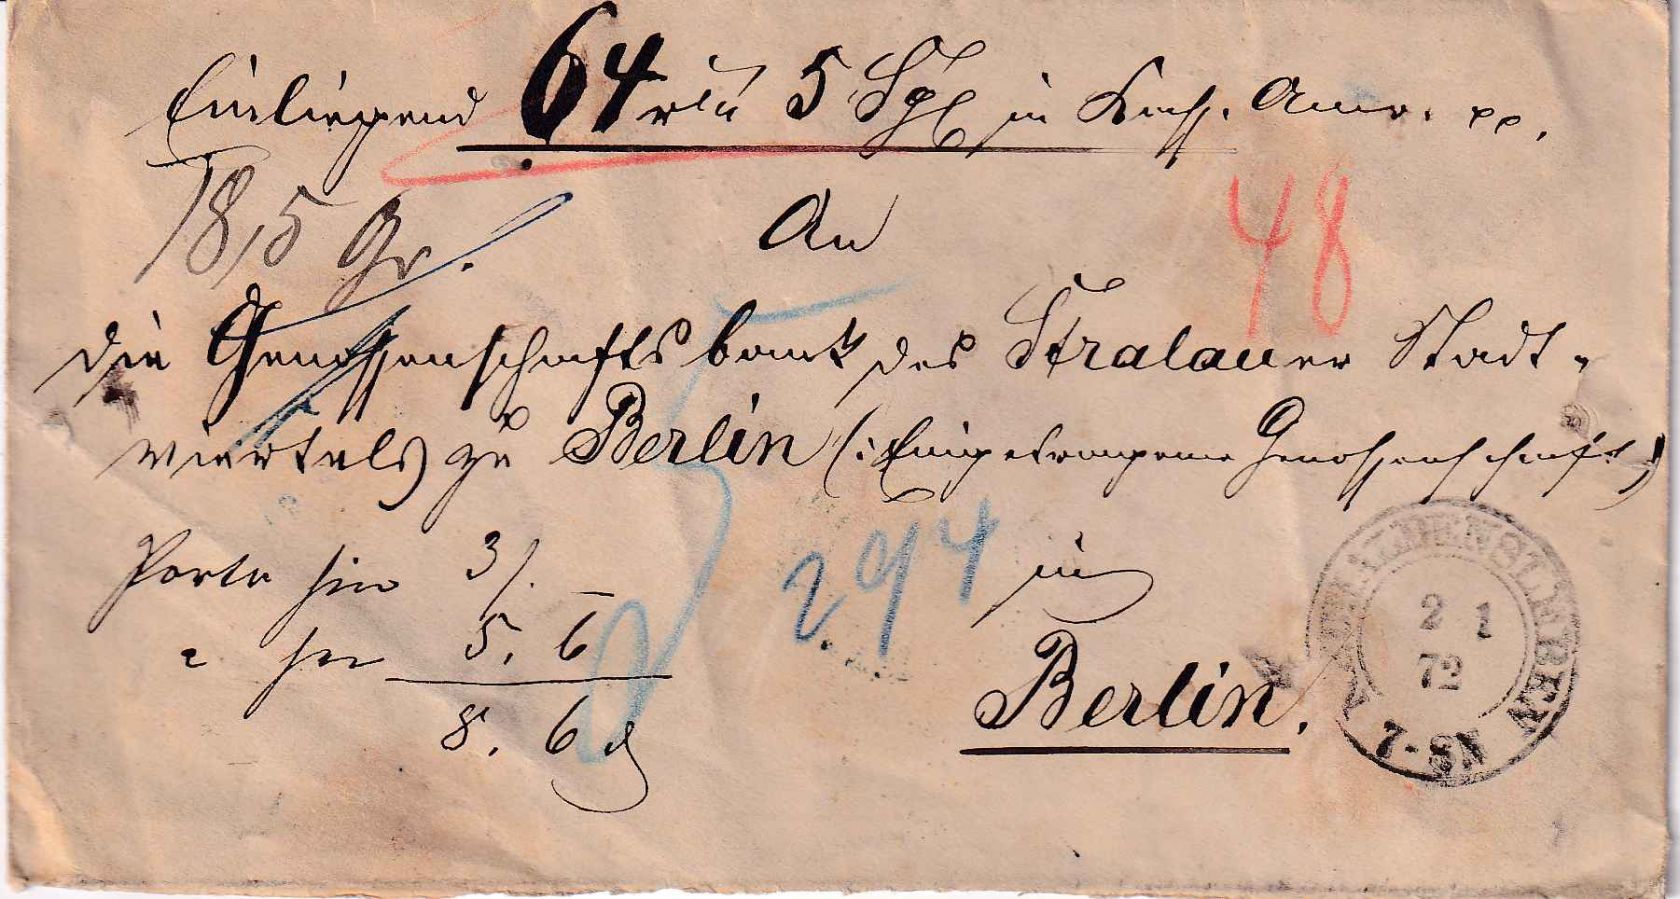 Einliegend 64 rtl 5 Sgl in Kass. Anw. pp.
18,5 Gr.
An
48
die Genossenschaftsbank des Stralauer Stadt-
viertels zu Berlin (: Eingetragene Genossenschaft)
294
in
Porto hin 3 /. –
" her 5. 6
8. 6 d
Berlin.
HALDENSLEBEN
2 1
72
7-8N